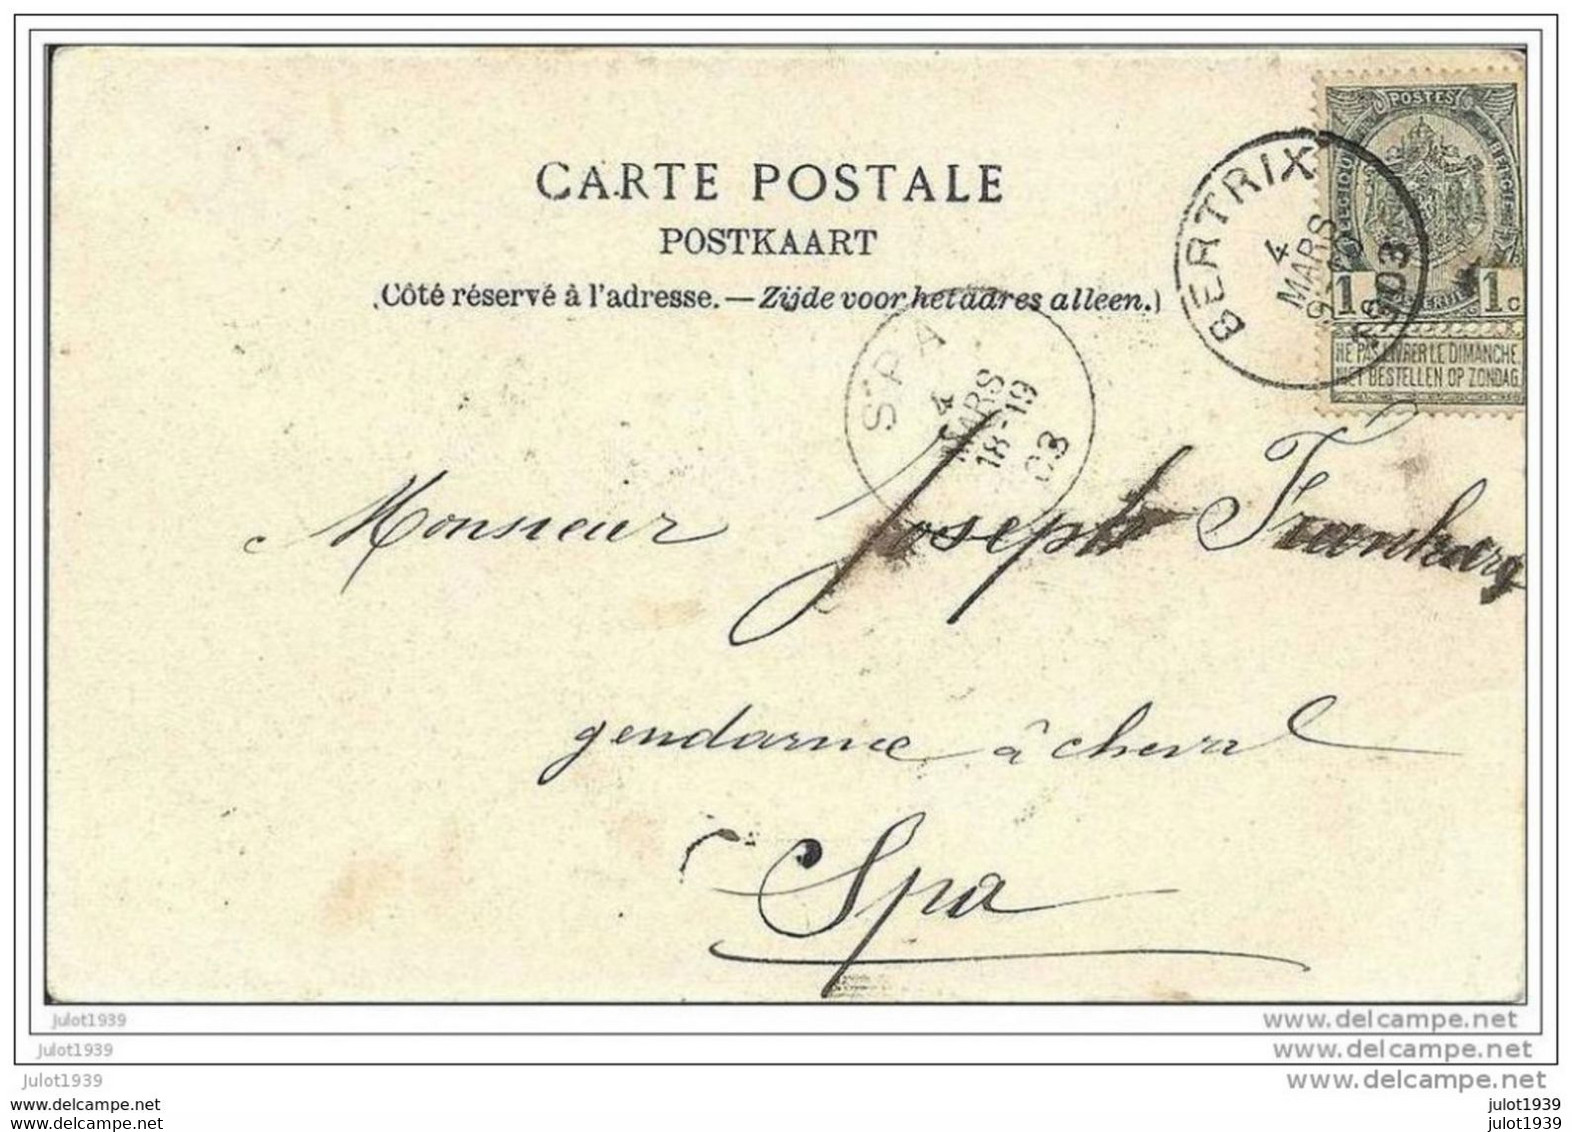 CARTE POSTALE
POSTKAART
(Côté réservé à l'adresse. — Zijde voor het adres alleen.)
POSTES
BELGIQUE BELGIE
1c 1c
NE PAS LIVRER LE DIMANCHE
NIET BESTELLEN OP ZONDAG
BERTRIX
4
MARS
1903
SPA
4
MARS
18-19
03
Monsieur Joseph
gendarme à cheval
Spa
julot1939
www.delcampe.net
julot1939
www.delcampe.net
julot1939
www.delcampe.net
www.delcampe.net
julot1939
www.delcampe.net
julot1939